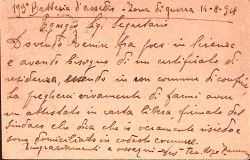 195ª Batteria d'assedio - Zona di guerra 14-8-918
Egregio Sg. Segretario
Dovendo venire fra poco in licenza
e avendo bisogno di un certificato di
residenza, essendo in un comune di confine
La pregherei vivamente di farmi avere
un attestato in carta libera firmato dal
Sindaco che dica che io veramente risiedo e
sono domiciliato in codesto comune.
Ringraziamenti e ossequi